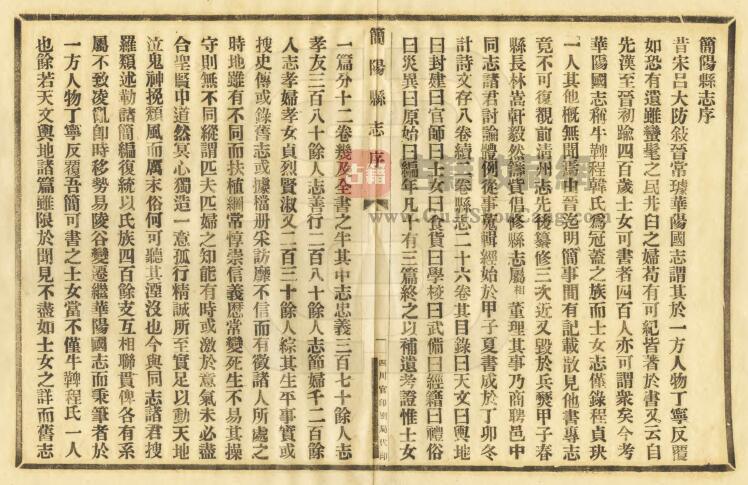 簡陽縣志序
昔宋呂大防敍晉常璩華陽國志謂其於一方人物丁寧反覆
如恐有遺雖蠻髦之民井臼之婦苟有可紀皆著於書又云自
先漢至晉初踰四百歲士女可書者四百人亦可謂衆矣今考
華陽國志稱牛鞞程韓氏爲冠蓋之族而士女志僅錄程貞玦
一人其他概無聞焉由晉迄明簡事間有記載散見他書專志
竟不可復覩前清州志先後纂修三次近又毀於兵燹甲子春
縣長林嵩軒毅然籌貲倡修縣志屬相董理其事乃商聘邑中
同志諸君討論體例從事蒐輯經始於甲子夏書成於丁卯冬
計詩文存八卷續一卷縣志二十六卷其目錄曰天文曰輿地
曰封建曰官師曰士女曰食貨曰學校曰武備曰經籍曰禮俗
曰災異曰原始曰編年凡十有三篇終之以補遺考證惟士女
簡陽縣志序
一
四川官印刷局代印
一篇分十二卷幾及全書之半其中志忠義三百七十餘人志
孝友三百八十餘人志善行二百八十餘人志節婦千二百餘
人志孝婦孝女貞烈賢淑又二百三十餘人綜其生平事實或
搜史傳或錄舊志或據檔册采訪靡不信而有徵諸人所處之
時地雖有不同而扶植綱常惇崇信義歷常變死生不易其操
守則無不同縱謂匹夫匹婦之知能有時或激於意氣未必盡
合聖賢中道然冥心獨造一意孤行精誠所至實足以動天地
泣鬼神挽頽風而厲末俗何可聽其湮沒也今與同志諸君搜
羅類述勒諸簡編復統以氏族四百餘支互相聯貫俾各有系
屬不致凌亂卽時移勢易陵谷變遷繼華陽國志而秉筆者於
一方人物丁寧反覆吾簡可書之士女當不僅牛鞞程氏一人
也餘若天文輿地諸篇雖限於聞見不盡如士女之詳而舊志
古籍
www.CulturShouCang.com